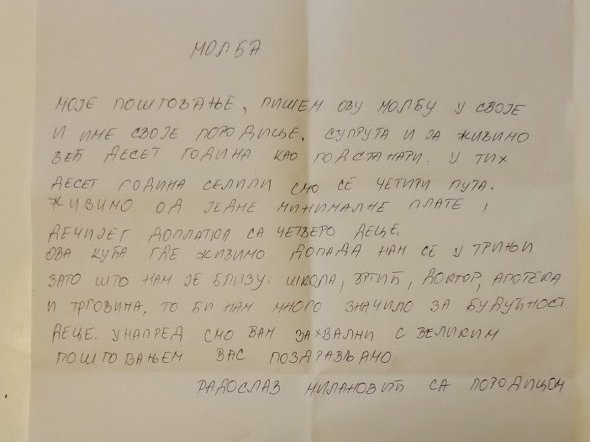 МОЛБА
МОЈЕ ПОШТОВАЊЕ, ПИШЕМ ОВУ МОЛБУ У СВОЈЕ
И ИМЕ СВОЈЕ ПОРОДИЦЕ. СУПРУГА И ЈА ЖИВИМО
ВЕЋ ДЕСЕТ ГОДИНА КАО ПОДСТАНАРИ. У ТИХ
ДЕСЕТ ГОДИНА СЕЛИЛИ СМО СЕ ЧЕТИРИ ПУТА.
ЖИВИМО ОД ЈЕДНЕ МИНИМАЛНЕ ПЛАТЕ,
ДЕЧИЈЕГ ДОПЛАТКА СА ЧЕТВЕРО ДЕЦЕ.
ОВА КУЋА ГДЕ ЖИВИМО ДОПАДА НАМ СЕ У ТРЊИ
ЗАТО ШТО НАМ ЈЕ БЛИЗУ: ШКОЛА, ВРТИЋ, ДОКТОР, АПОТЕКА
И ТРГОВИНА. ТО БИ НАМ МНОГО ЗНАЧИЛО ЗА БУДУЋНОСТ
ДЕЦЕ. УНАПРЕД СМО ВАМ ЗАХВАЛНИ С ВЕЛИКИМ
ПОШТОВАЊЕМ ВАС ПОЗДРАВЉАМО
РАДОСЛАВ МИЛАНОВИЋ СА ПОРОДИЦОМ